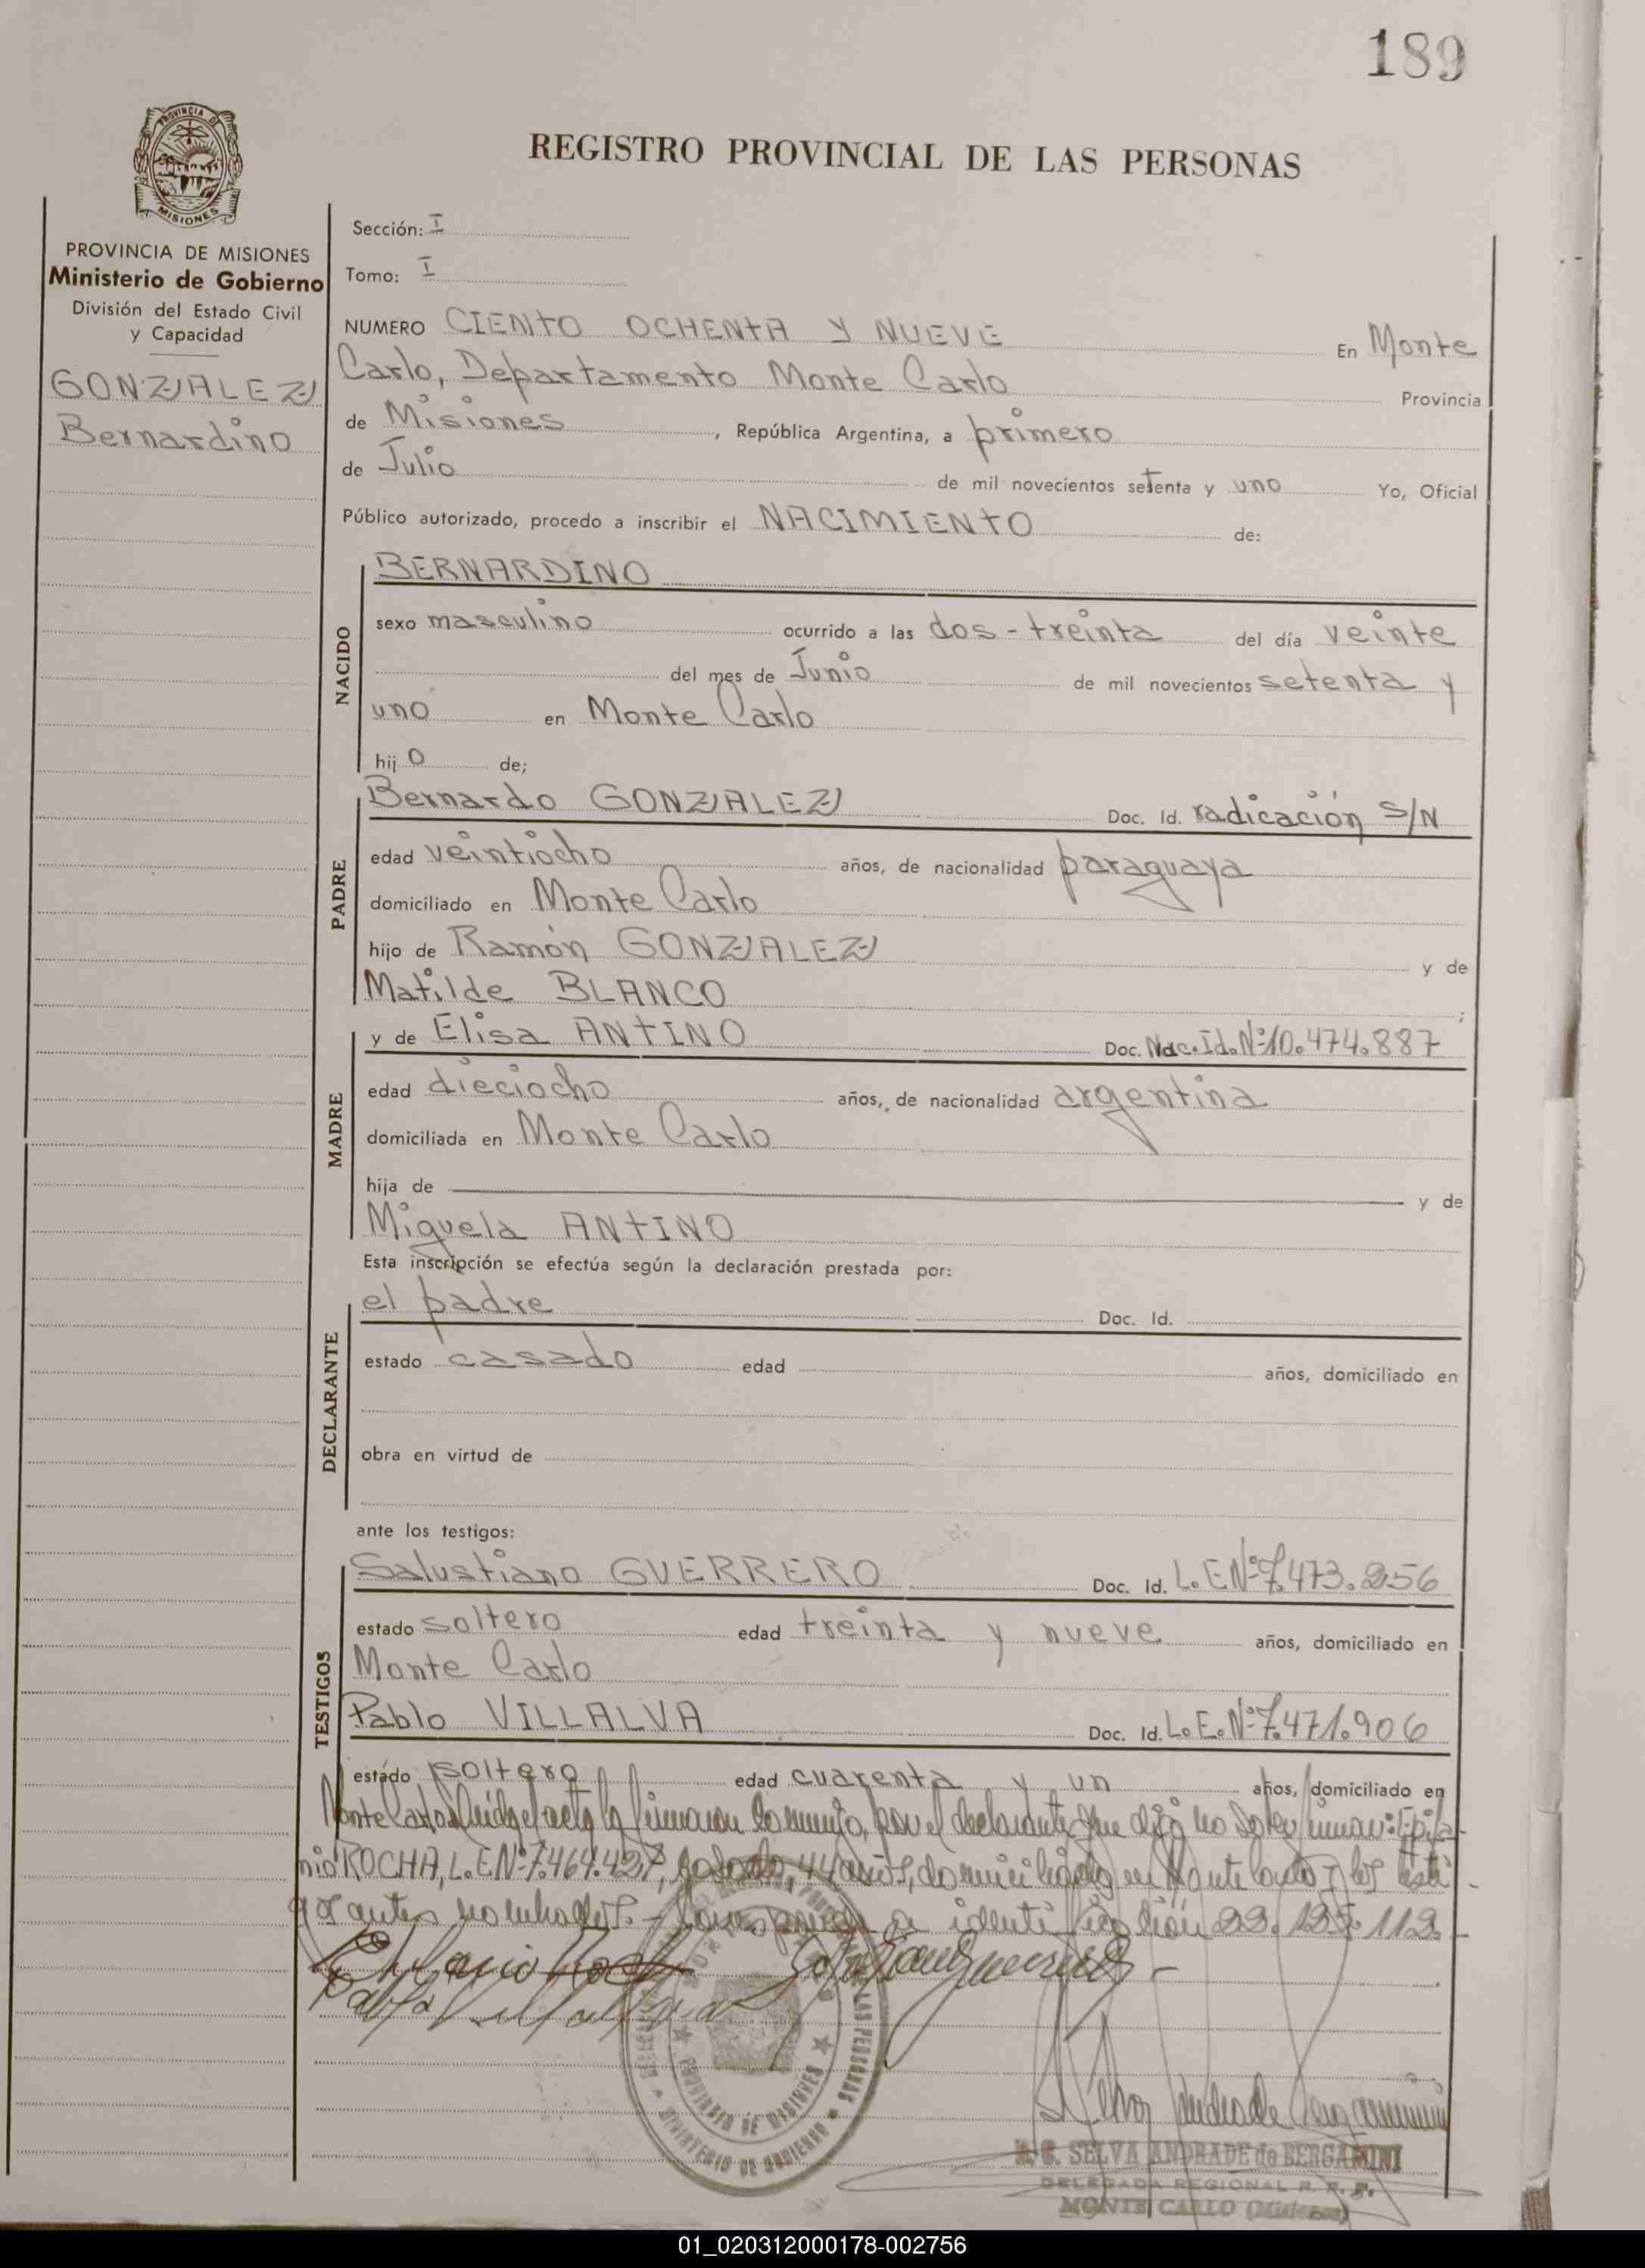 189
PROVINCIA DE
MISIONES
REGISTRO PROVINCIAL DE LAS PERSONAS
PROVINCIA DE MISIONES
Ministerio de Gobierno
División del Estado Civil
y Capacidad
GONZALEZ
Bernardino
Sección: I
Tomo: I
NUMERO CIENTO OCHENTA Y NUEVE En Monte
Carlo, Departamento Monte Carlo Provincia
de Misiones, República Argentina, a primero
de Julio de mil novecientos setenta y uno Yo, Oficial
Público autorizado, procedo a inscribir el NACIMIENTO de:
NACIDO
BERNARDINO
sexo masculino ocurrido a las dos-treinta del día veinte
del mes de Junio de mil novecientos setenta y
uno en Monte Carlo
hijo de;
PADRE
Bernardo GONZALEZ Doc. Id. radicación S/N
edad veintiocho años, de nacionalidad paraguaya
domiciliado en Monte Carlo
hijo de Ramón GONZALEZ y de
Matilde BLANCO ;
MADRE
y de Elisa ANTINO Doc. Nac. Id. Nº 10.474.887
edad dieciocho años, de nacionalidad argentina
domiciliada en Monte Carlo
hija de y de
Miguela ANTINO
Esta inscripción se efectúa según la declaración prestada por:
DECLARANTE
el padre Doc. Id.
estado casado edad años, domiciliado en
obra en virtud de
ante los testigos:
TESTIGOS
Salustiano GUERRERO Doc. Id. L. E Nº 7.473.256
estado soltero edad treinta y nueve años, domiciliado en
Monte Carlo
Pablo VILLALVA Doc. Id. L. E. Nº 7.471.906
estado soltero edad cuarenta y un años, domiciliado en
Monte Carlo. Leída el acta la firmaron conmigo, por el declarante que dijo no saber firmar: Epifa-
nio ROCHA, L. E Nº 7.464.427, casado, 44 años, domiciliado en Monte Carlo y los testi-
gos antes nombrados.- identificación 22.135.112.-
Pablo Villalva
REGISTRO PROVINCIAL DE LAS PERSONAS
PROVINCIA DE MISIONES
MINISTERIO DE GOBIERNO
SELVA ANDRADE de BERGAMINI
DELEGADA REGIONAL R. P. P.
MONTE CARLO (Misiones)
01_020312000178-002756